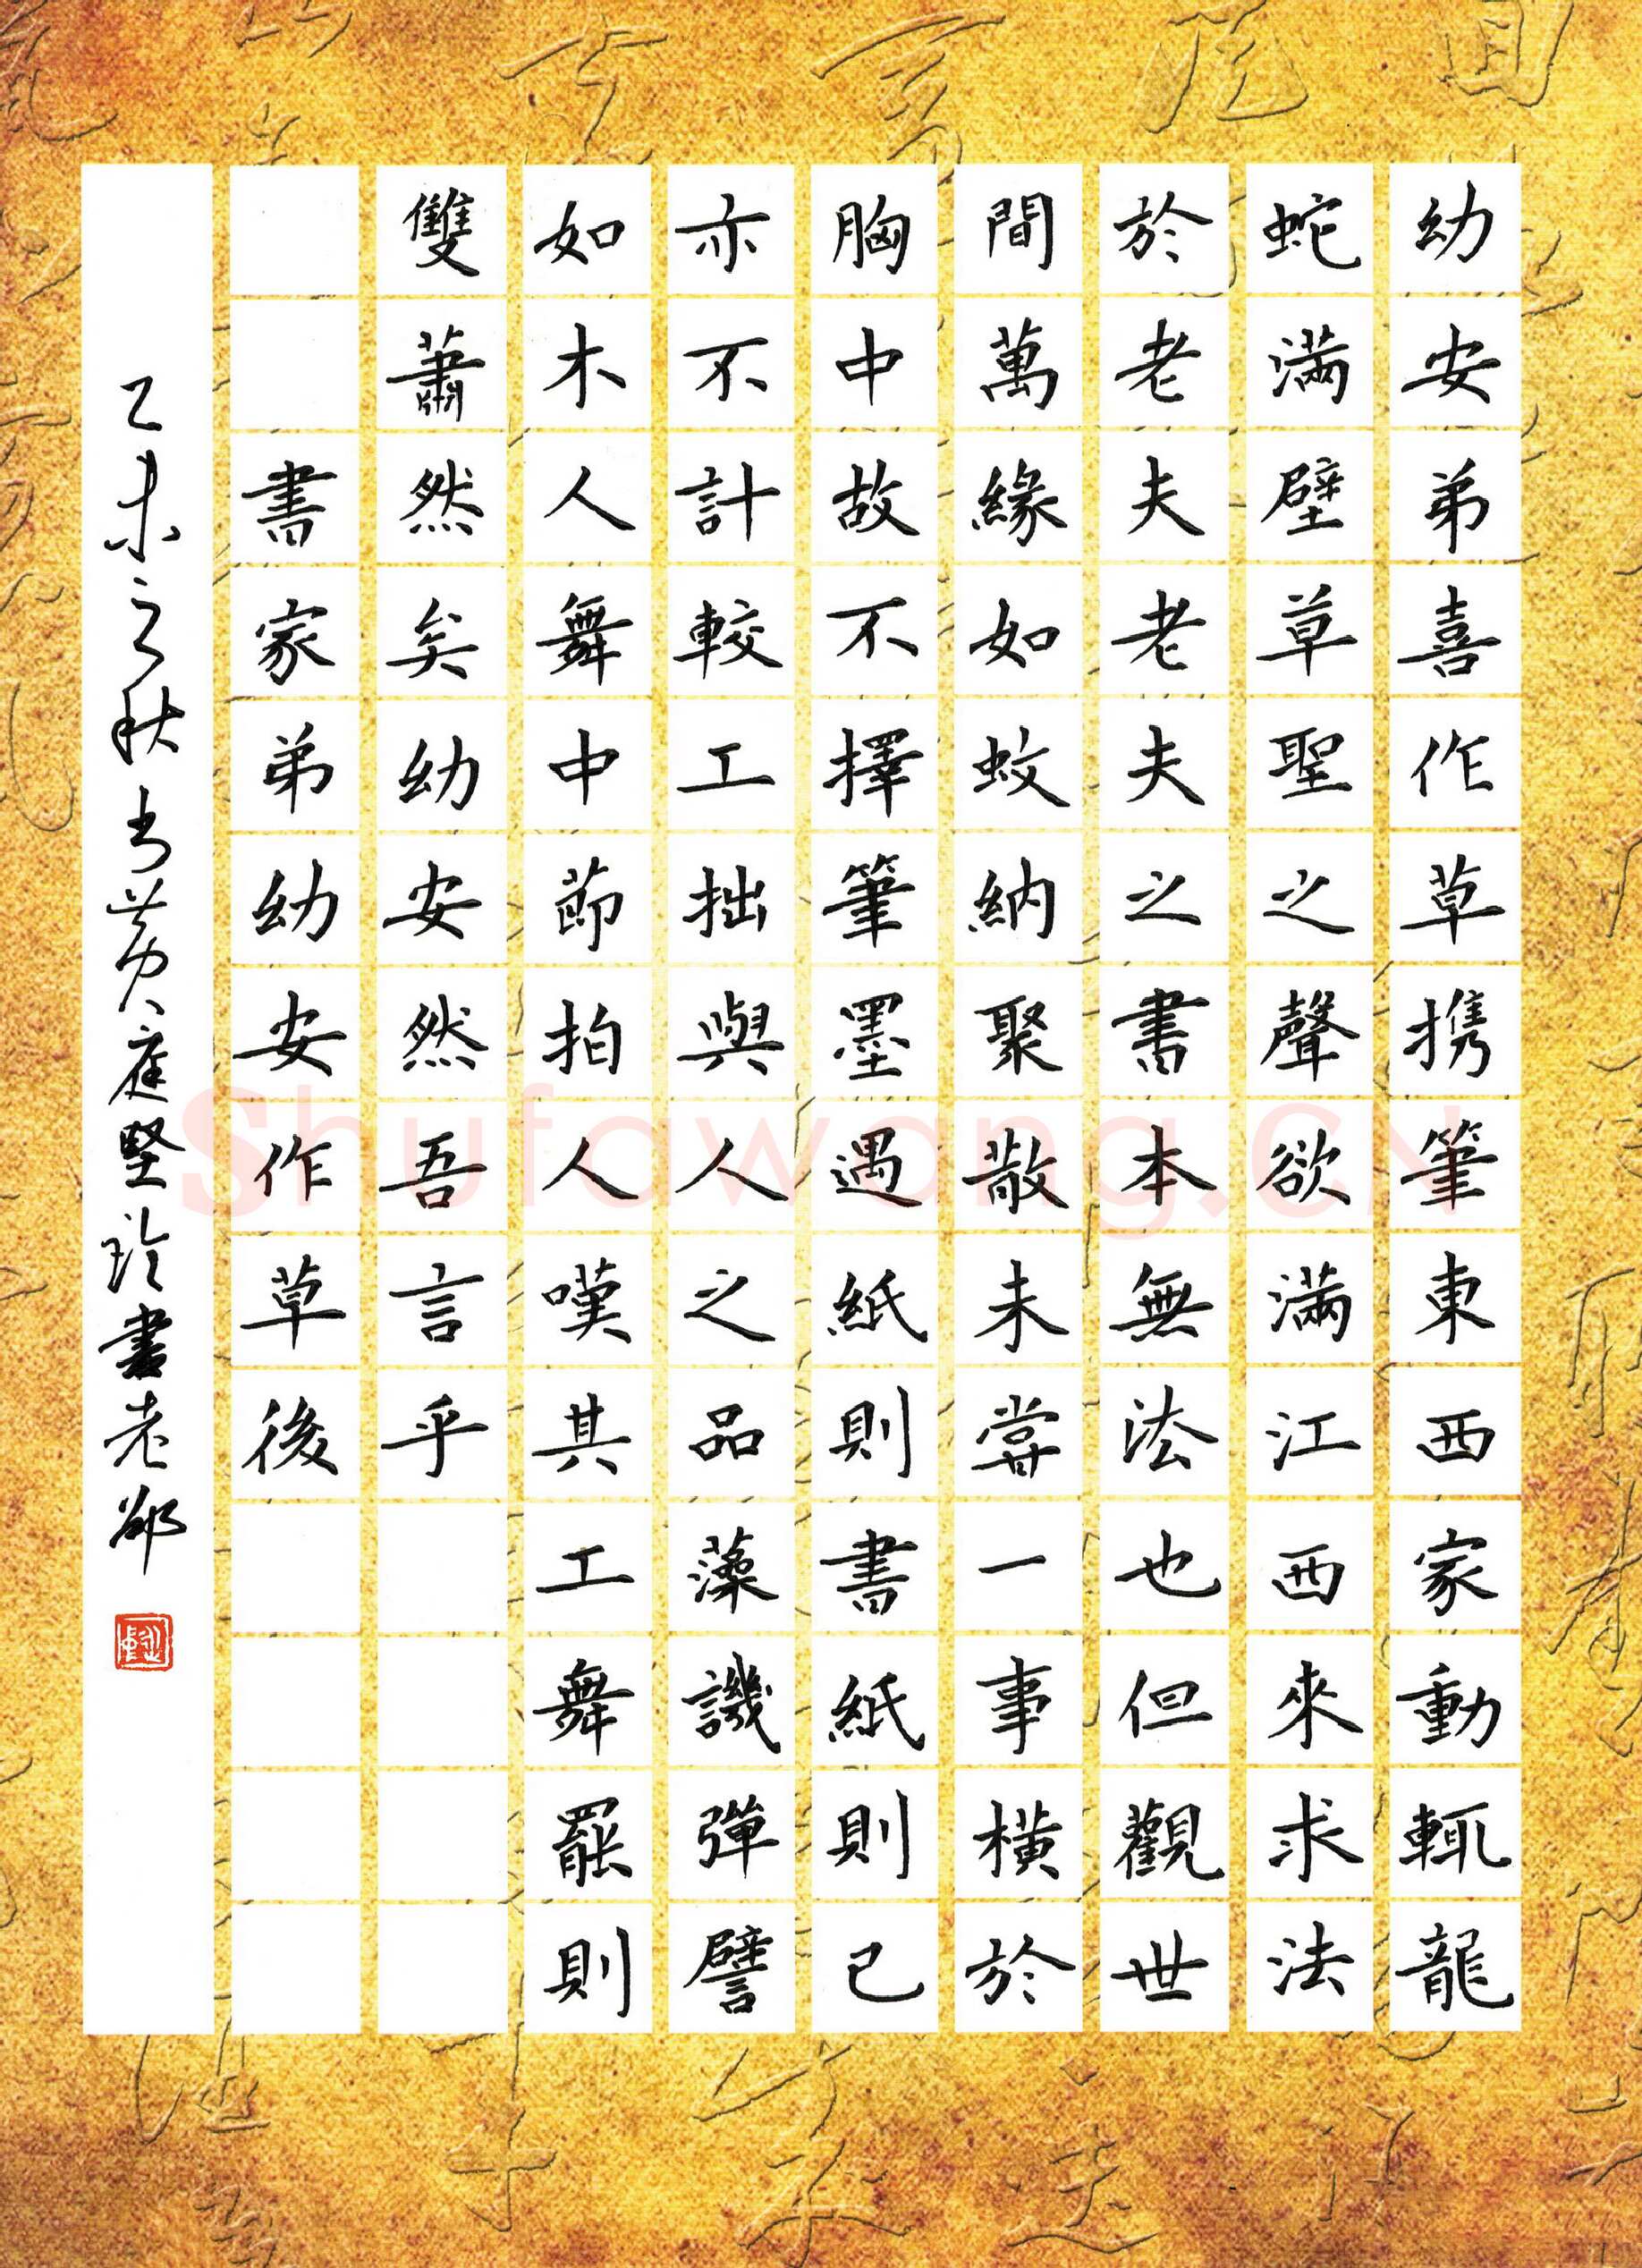 幼安弟喜作草携筆東西家動輒龍
蛇满壁草聖之聲欲满江西來求法
於老夫老夫之書本無法也但觀世
間萬緣如蚊納聚散未嘗一事横於
胸中故不擇筆墨遇紙則書紙則已
亦不計較工拙與人之品藻譏彈譬
如木人舞中節拍人嘆其工舞罷則
雙蕭然矣幼安然吾言乎
書家弟幼安作草後
乙未之秋書黄庭堅跋書老鄒
Shufawang.CN